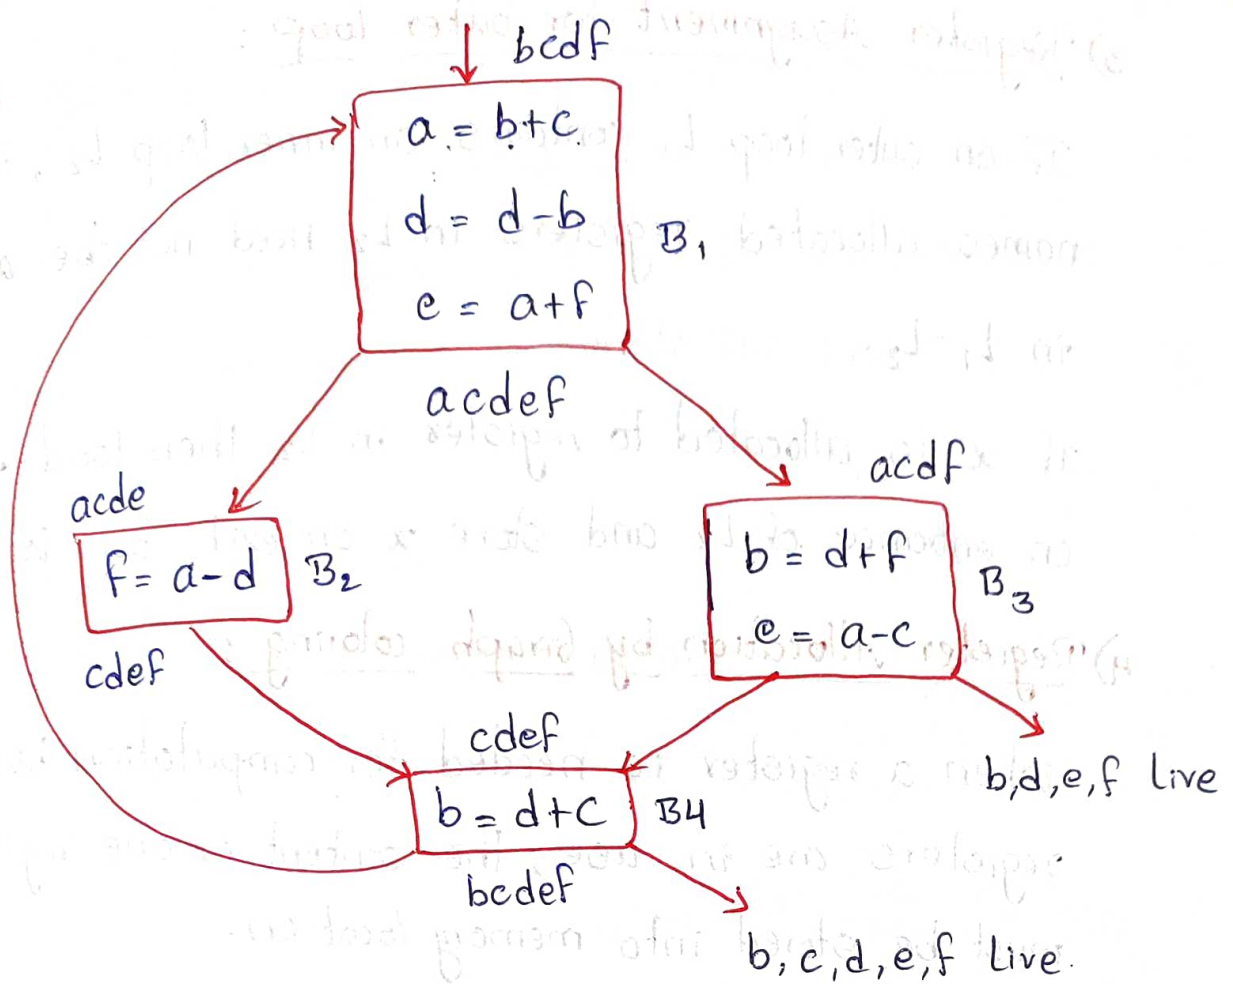 bcdf
a = b+c
d = d-b
e = a+f
B1
acdef
acde
f= a-d
B2
cdef
acdf
b = d+f
e = a-c
B3
b,d,e,f live
cdef
b = d+c
B4
bcdef
b,c,d,e,f live.